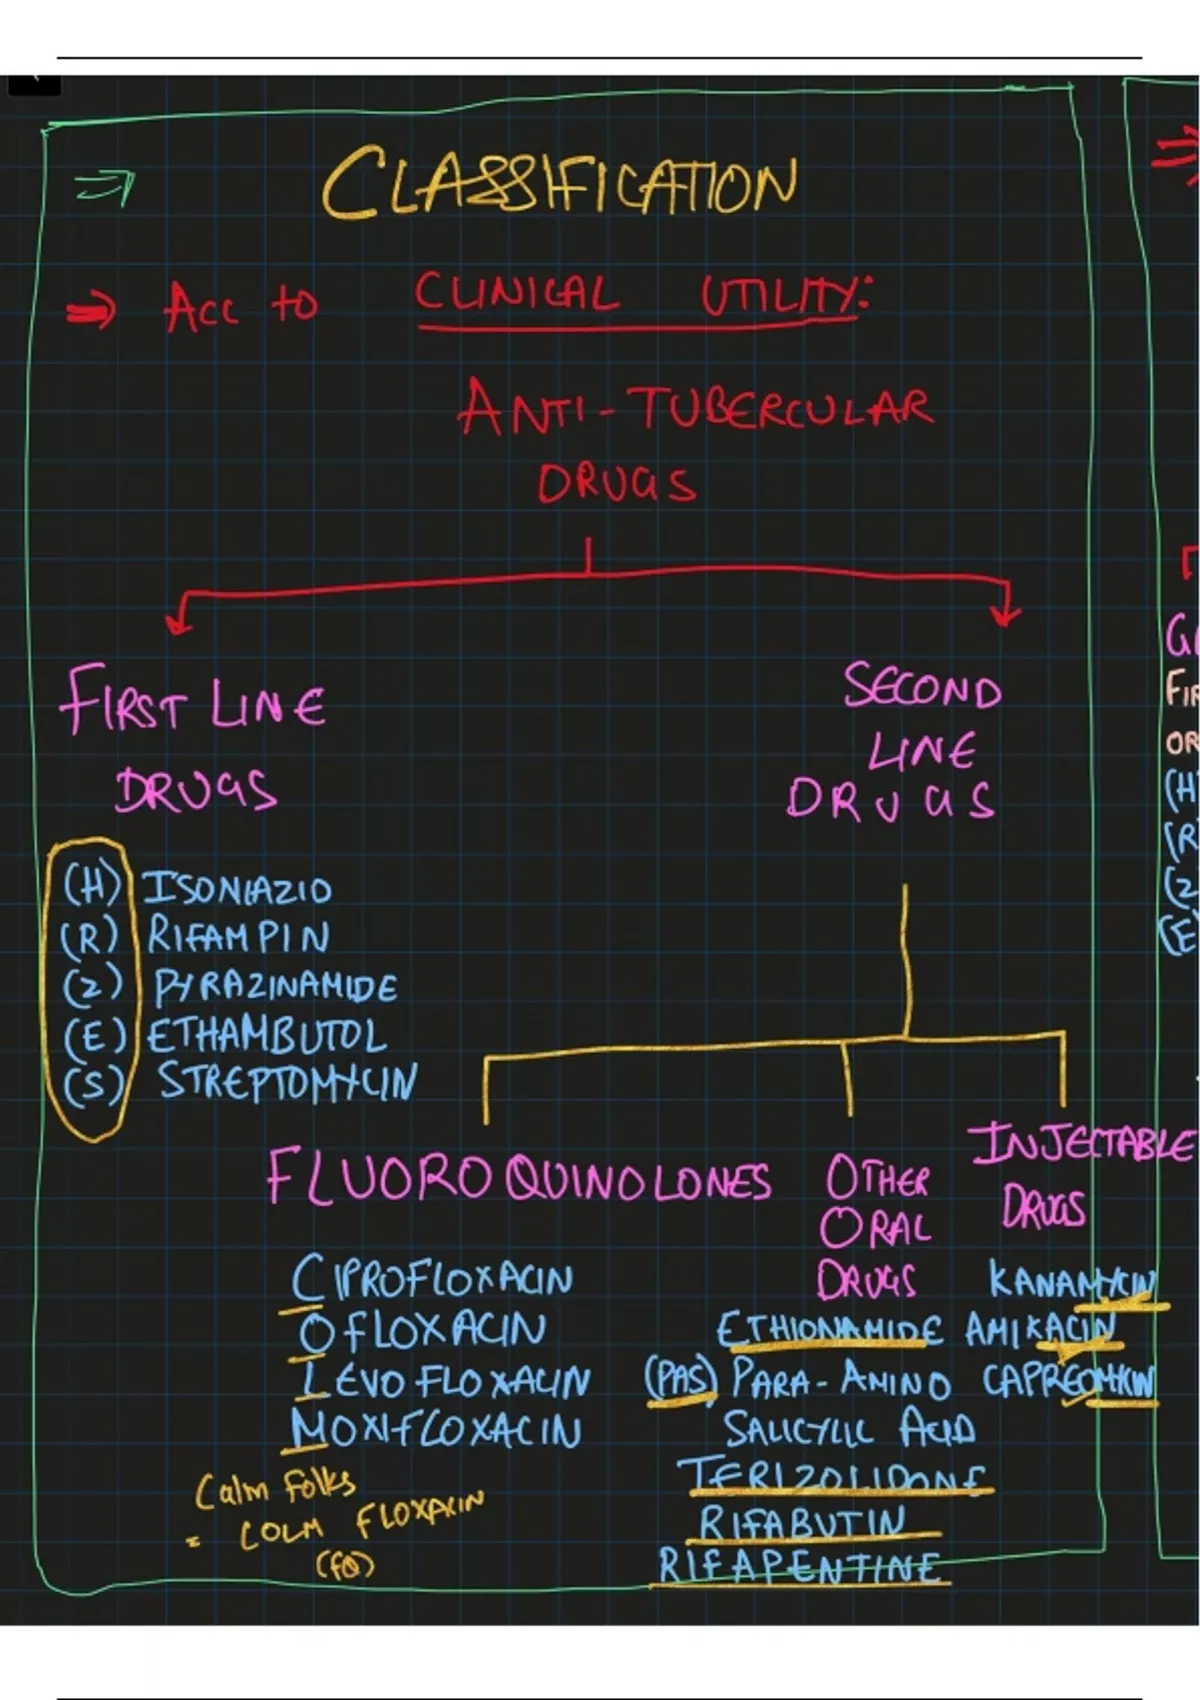 CLASSIFICATION
ACC to CLINICAL UTILITY:
ANTI-TUBERCULAR
DRUGS
FIRST LINE
DRUGS
(H) ISONIAZID
(R) RIFAMPIN
(Z) PYRAZINAMIDE
(E) ETHAMBUTOL
(S) STREPTOMYCIN
SECOND
LINE
DRUGS
FLUOROQUINOLONES
CIPROFLOXACIN
OFLOXACIN
LEVOFLOXACIN
MOXIFLOXACIN
Calm Folks
= COLM FLOXACIN
(FQ)
OTHER
ORAL
DRUGS
ETHIONAMIDE
(PAS) PARA-AMINO
SALICYLIC ACID
TERIZOLIDONE
RIFABUTIN
RIFAPENTINE
INJECTABLE
DRUGS
KANAMYCIN
AMIKACIN
CAPREOMYCIN
FIR
OR
(H
(R
(Z
(E